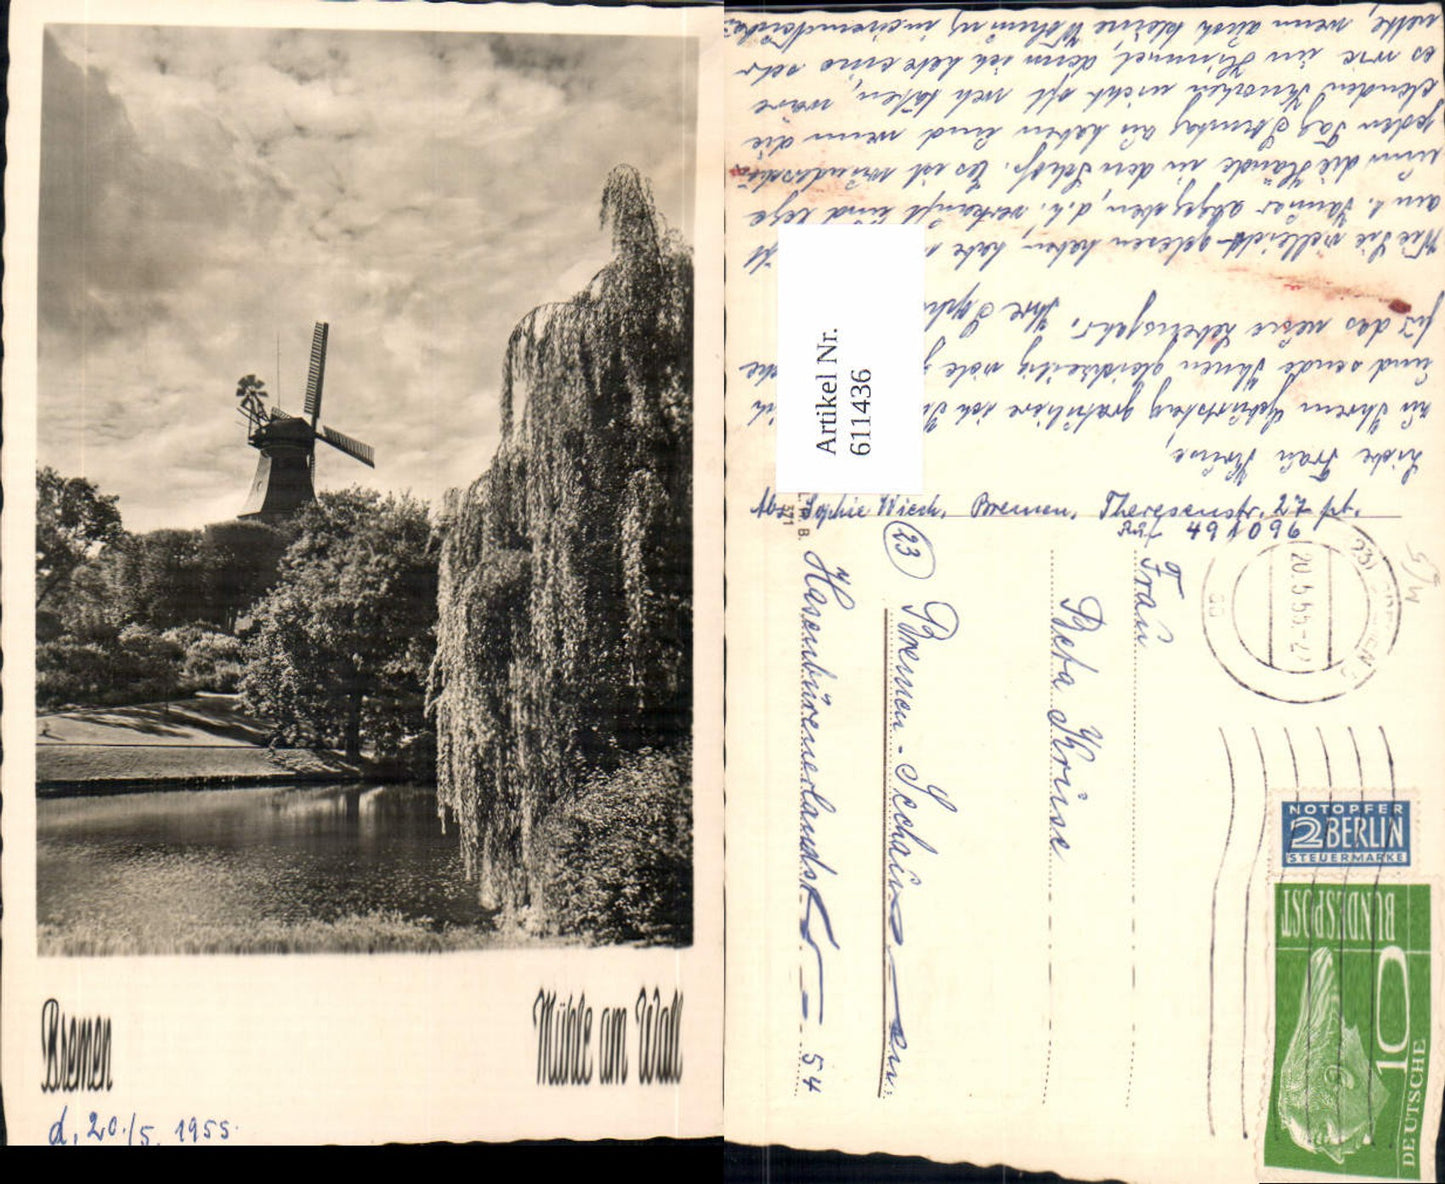 Bremen
Mühle am Wall
d. 20./5. 1955.
Artikel Nr.
611436
Liebe Frau Kruse,
zu Ihrem Geburtstag gratuliere ich
und sende Ihnen gleichzeitig viele
für das neue Lebensjahr. Ihre
Wie Sie vielleicht gelesen haben, habe
am 1. Januar abgegeben, d.h. verkauft und lege
nun die Hände in den Schoß. Es ist
jeden Tag Sonntag zu haben und wenn die
elenden Knochen nicht oft weh täten, wäre
es wie im Himmel, denn ich habe eine sehr
nette, wenn auch kleine Wohnung
Abs. Sophie Wiech, Bremen, Theresenstr. 27 pt.
Ruf 491096
Frau
Beta Kruse
(23) Bremen-
Hasenbürenerlandstr. 54
20.5.55.-
NOTOPFER
2 BERLIN
STEUERMARKE
DEUTSCHE
BUNDESPOST
10